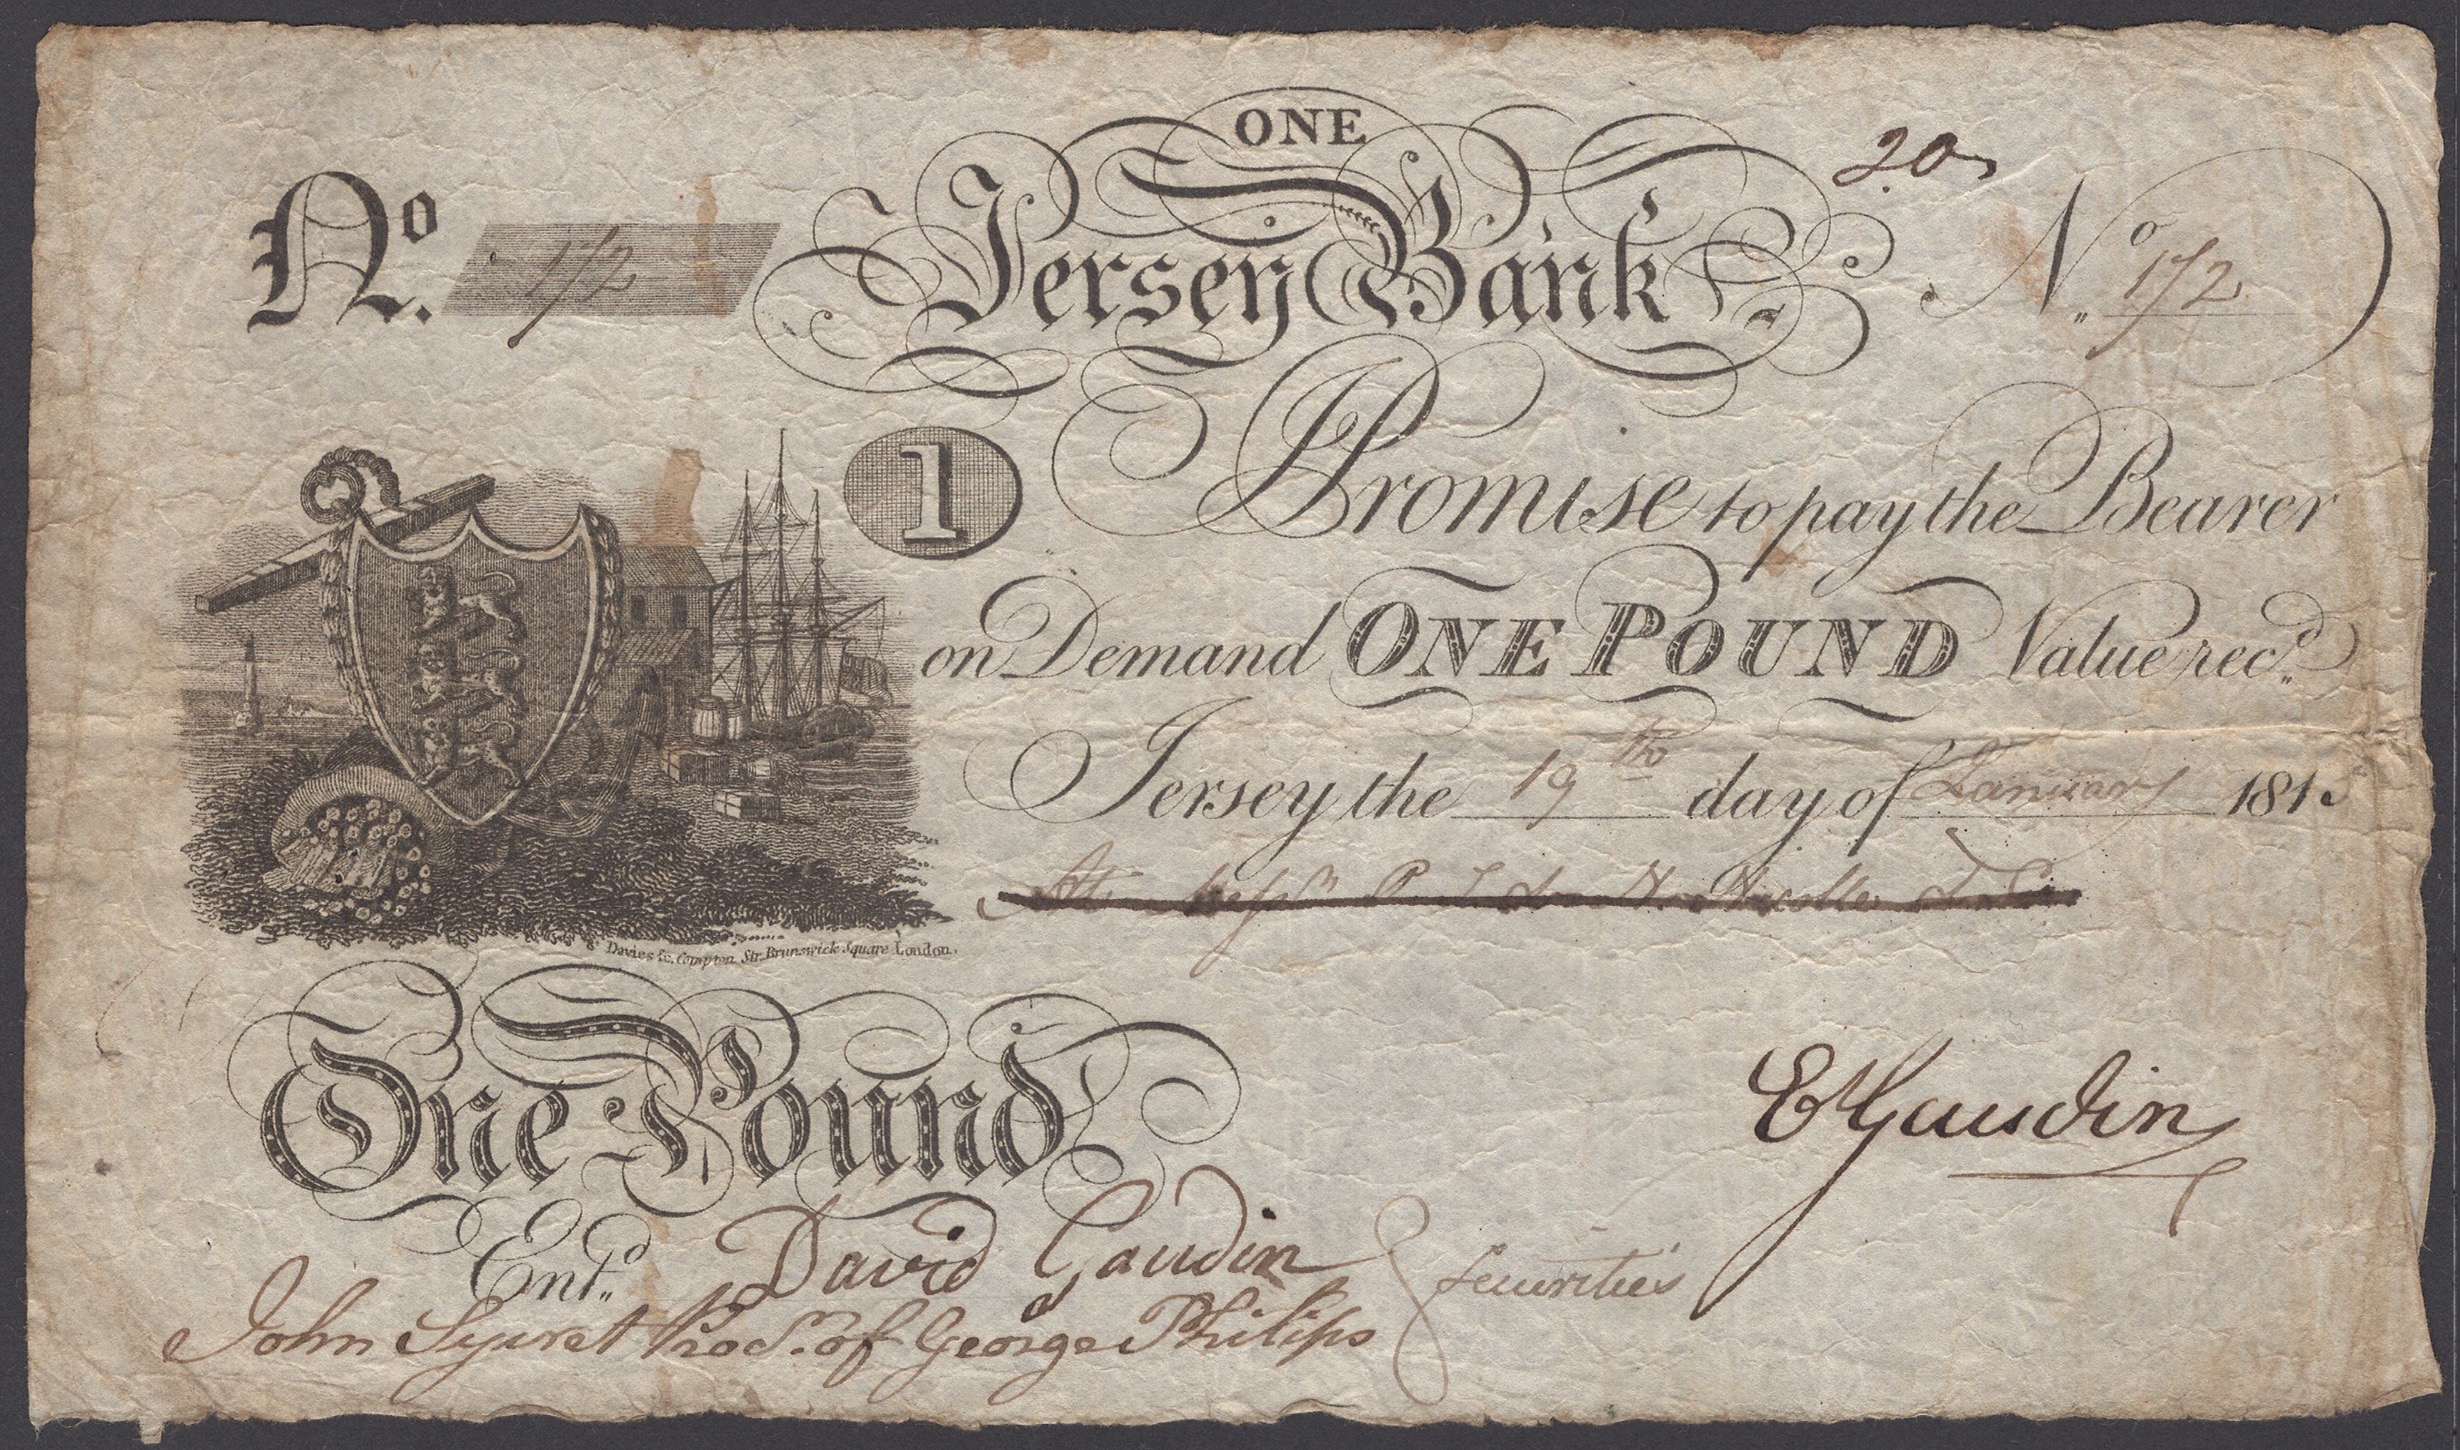 ONE
20
No. 172 Jersey Bank No. 172
1 I Promise to pay the Bearer
on Demand ONE POUND Value rec.d
Jersey the 19th day of January 181
At P. Nicolle & Co.
Davies sc. Compton Str. Brunswick Square London.
One Pound
E Gaudin
Ent.d David Gaudin
Securities
John Syvret Prod. of George Philips